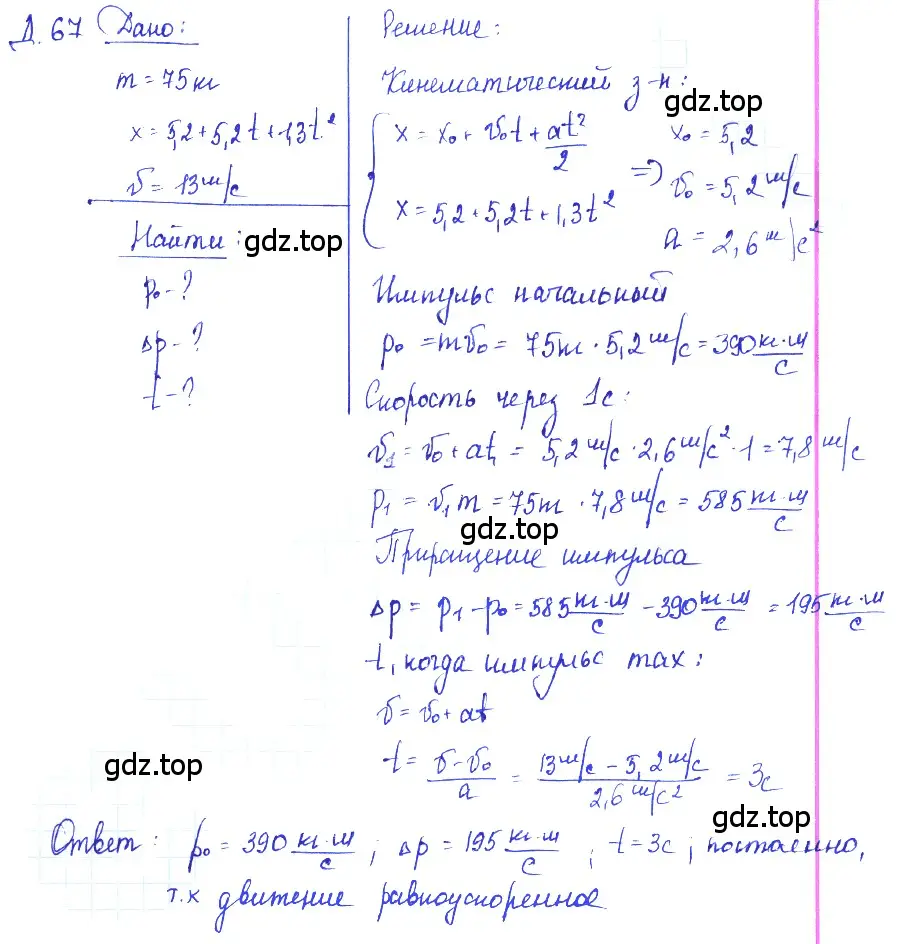 Д. 67 Дано:
m = 75 кг
x = 5,2 + 5,2t + 1,3t²
v = 13 м/с
Найти:
p₀ - ?
Δp - ?
t - ?
Решение:
Кинематический з-н:
x = x₀ + v₀t + at²/2
x = 5,2 + 5,2t + 1,3t²
=> x₀ = 5,2
v₀ = 5,2 м/с
a = 2,6 м/с²
Импульс начальный
p₀ = mv₀ = 75 кг · 5,2 м/с = 390 кг·м/с
Скорость через 1с:
v₁ = v₀ + at₁ = 5,2 м/с · 2,6 м/с² · 1 = 7,8 м/с
p₁ = v₁m = 75 кг · 7,8 м/с = 585 кг·м/с
Приращение импульса
Δp = p₁ - p₀ = 585 кг·м/с - 390 кг·м/с = 195 кг·м/с
t, когда импульс max:
v = v₀ + at
t = (v - v₀)/a = (13 м/с - 5,2 м/с)/(2,6 м/с²) = 3с
Ответ: p₀ = 390 кг·м/с; Δp = 195 кг·м/с; t = 3с; постоянно,
т.к движение равноускоренное
gdz.top
gdz.top
gdz.top
gdz.top
gdz.top